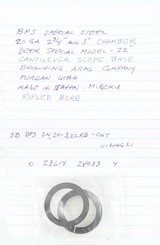 BPS SPECIAL STEEL
20 GA 2 3/4" and 3" CHAMBER
DEER SPECIAL MODEL - 22"
CANTILEVER SCOPE BASE
BROWNING ARMS COMPANY
MORGAN UTAH
MADE IN JAPAN - MIROKU
RIFLED BORE
SB BPS
0 23614 4